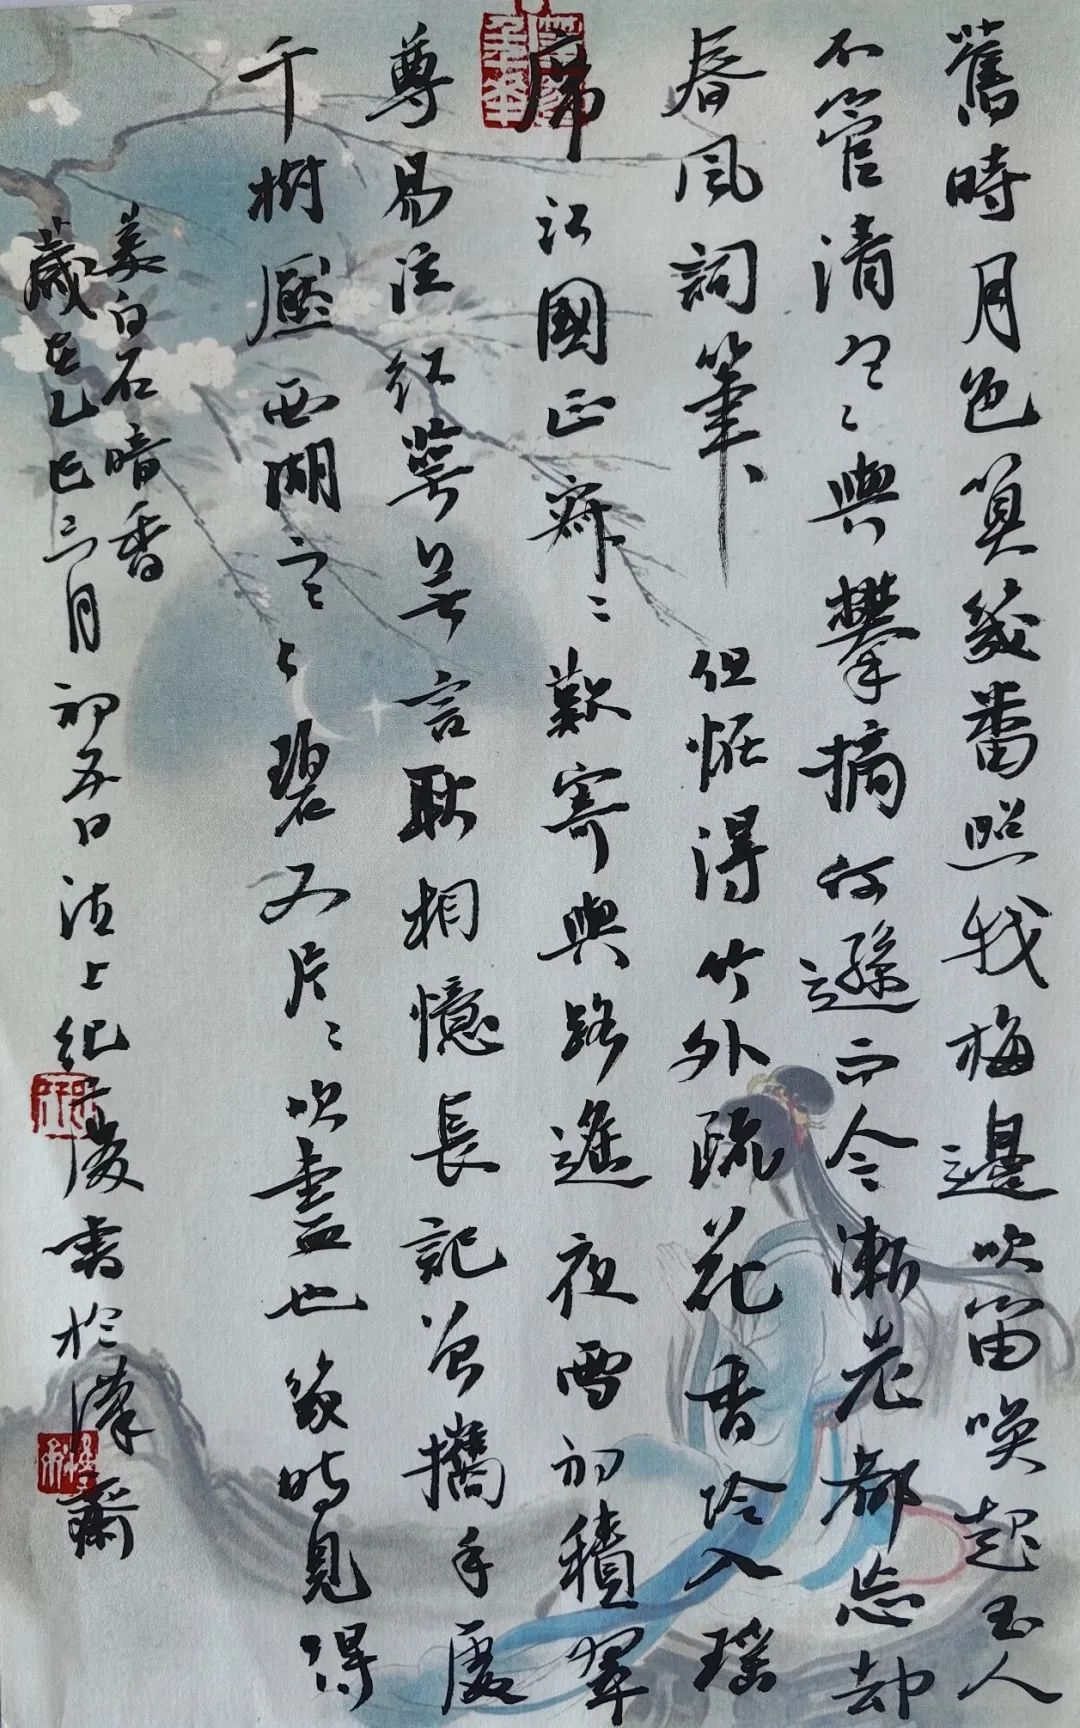 舊時月色算幾番照我梅邊吹笛喚起玉人
不管清寒與攀摘何遜而今漸老都忘却
春風詞筆但恠得竹外疏花香冷入瑤
席江國正寂寂歎寄與路遙夜雪初積翠
尊易泣紅萼無言耿相憶長記曾攜手處
千樹壓西湖寒碧又片片吹盡也幾時見得
姜白石暗香
歲在乙巳三月初五日沽上紀慶書於漢齋